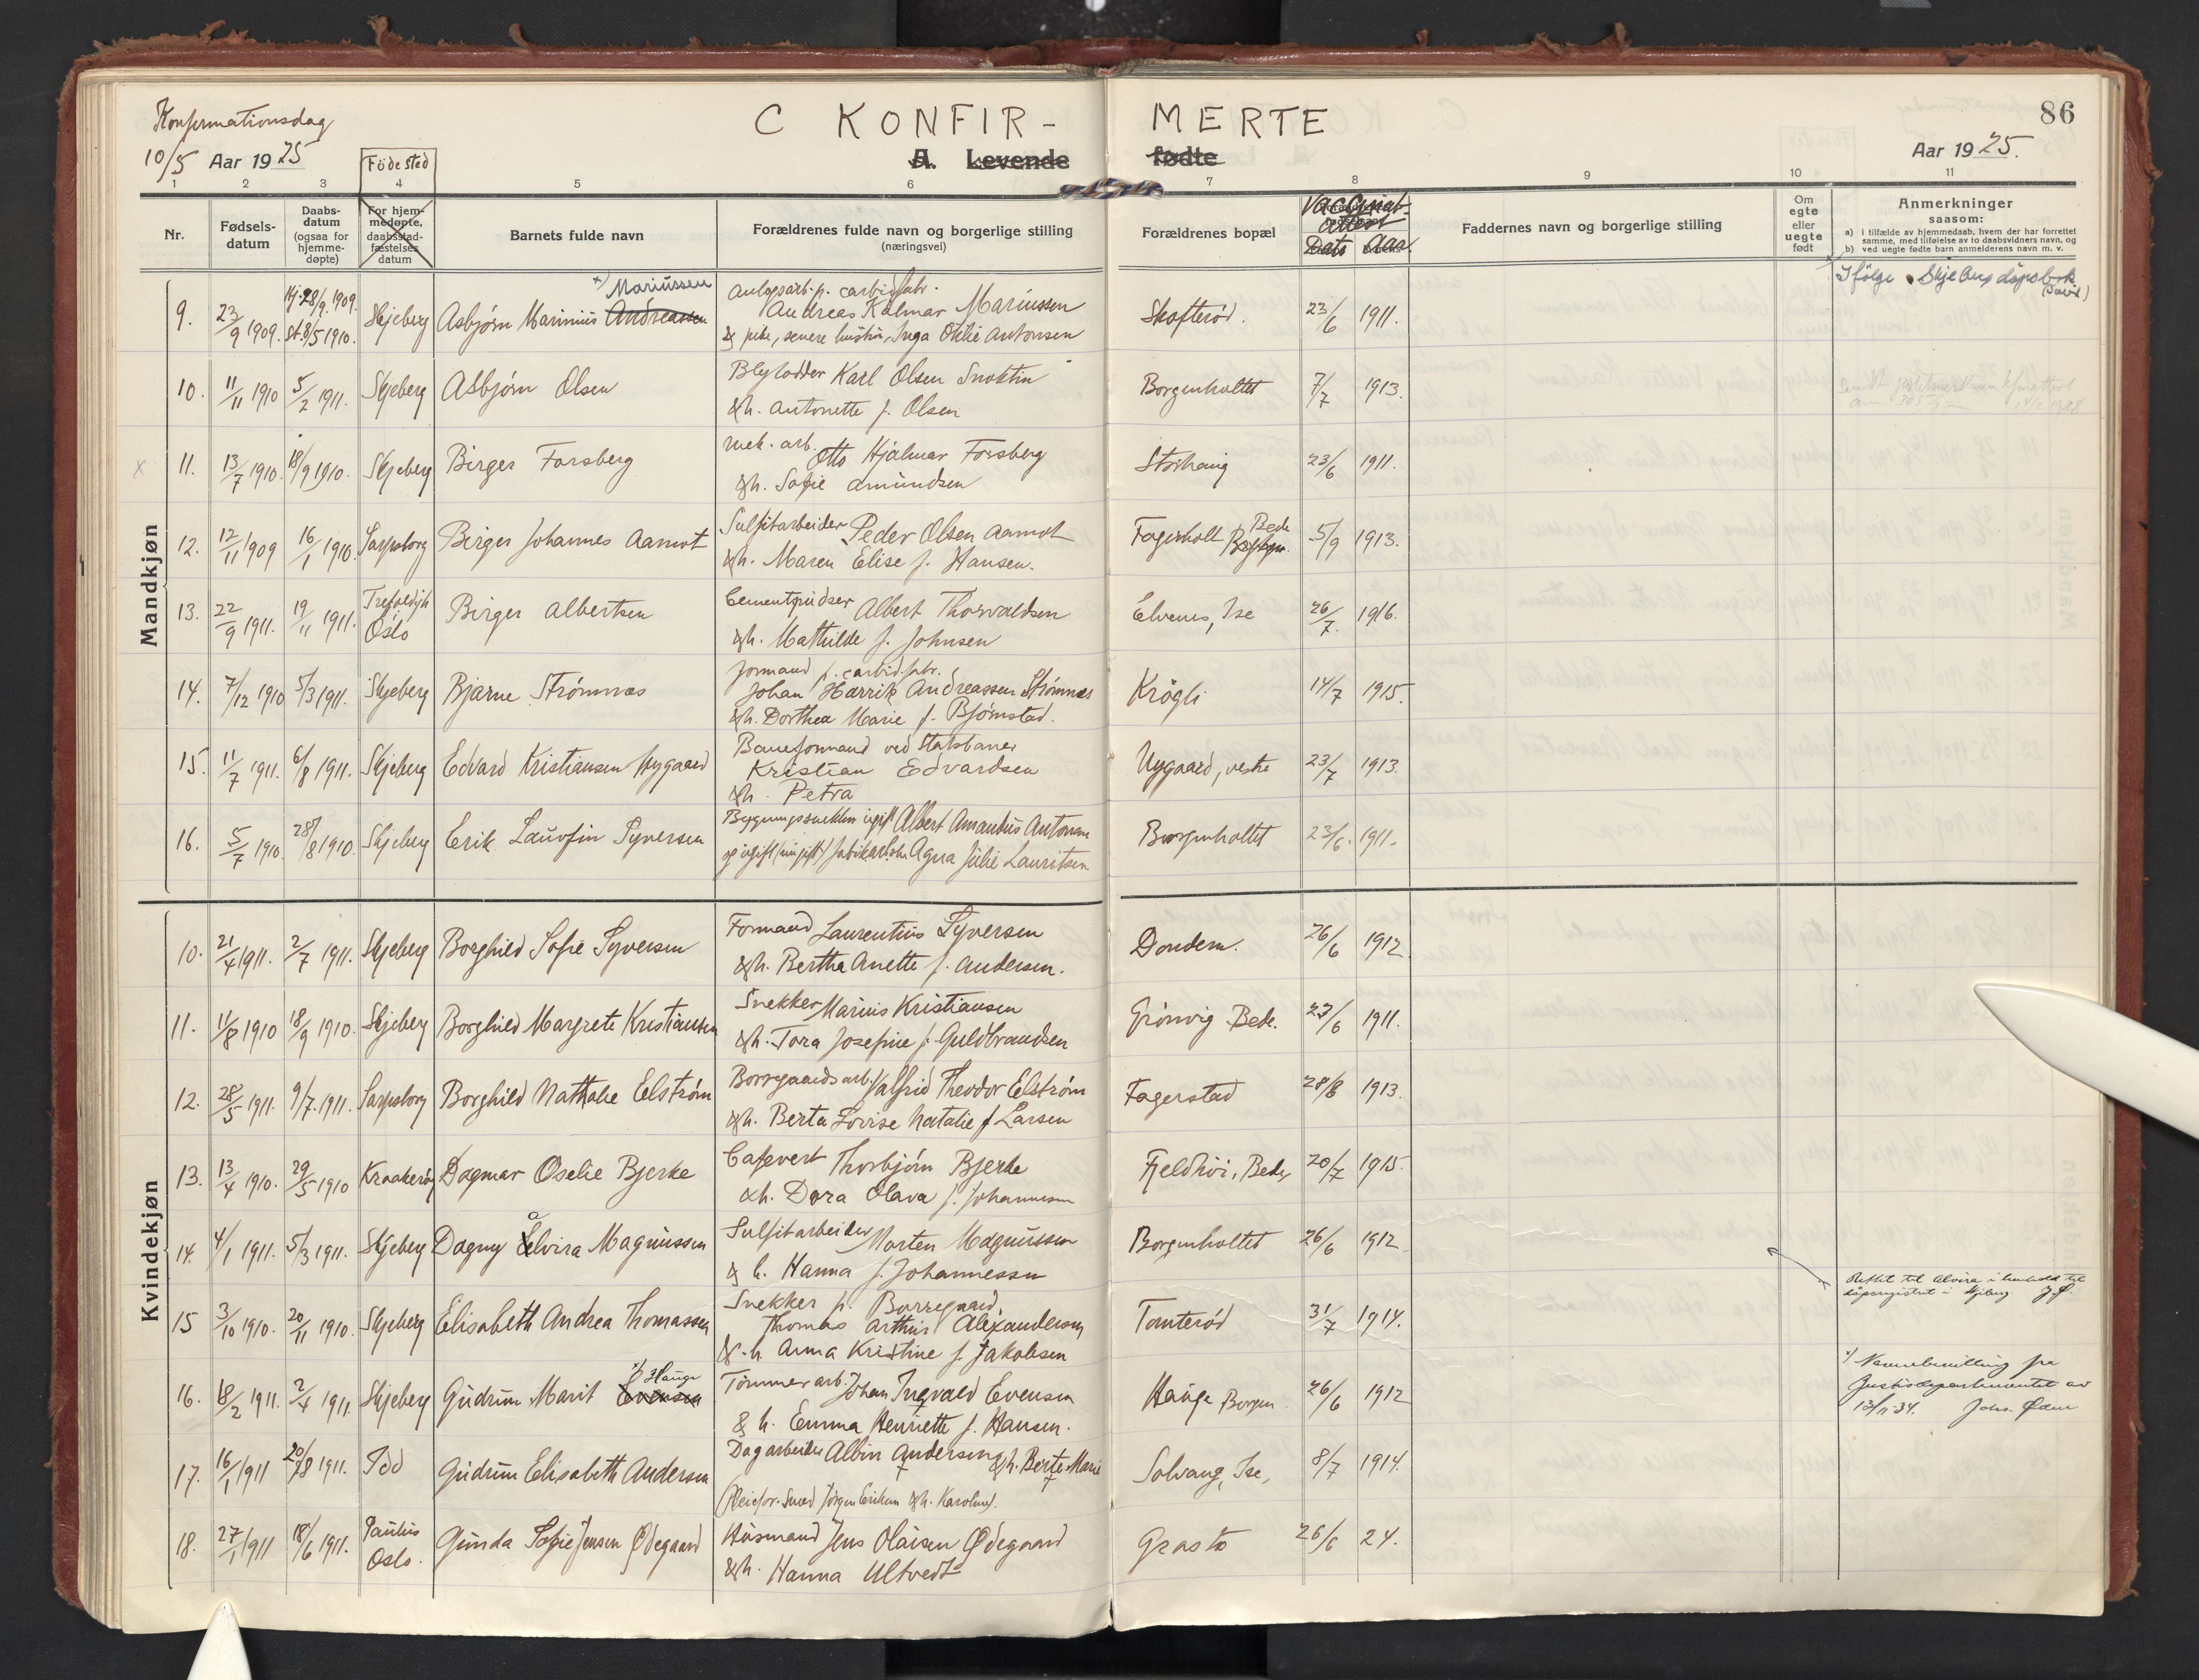 Konfirmationsdag
10/5 Aar 1925
C KONFIR- MERTE
A. Levende fødte
86
Aar 1925.
Fødested
1 2 3 4 5 6 7 8 9 10 11
Nr.
Fødsels-
datum
Daabs-
datum
(ogsaa for
hjemme-
døpte)
For hjem-
medøpte,
daabsstad-
fæstelses
datum
Barnets fulde navn
Forældrenes fulde navn og borgerlige stilling
(næringsvei)
Forældrenes bopæl
Vaccinat.
attest
Dato Aar.
Faddernes navn og borgerlige stilling
Om
egte
eller
uegte
født
Anmerkninger
saasom:
a) i tilfælde av hjemmedaab, hvem der har forrettet
samme, med tilføielse av to daabsvidners navn, og
b) ved uegte fødte barn anmelderens navn m. v.
Mandkjøn
Mariussen
9. 23/9 1909. Hj. 28/9. 1909. Skjeberg Asbjørn Marinius Andreassen
St. 8/5 1910.
carbidfabr.
Andreas Kalmar Mariussen
senere hustru, Inga Otilie Antonsen
Skofterød. 23/6 1911.
Ifølge Skjeberg dåpsbok
10. 11/11 1910 5/2 1911. Skjeberg Asbjørn Olsen
Blylodder Karl Olsen
&h. Antonette f. Olsen
Borgenholtet 7/7 1913.
X 11. 13/7 1910. 18/9 1910. Skjeberg Birger Forsberg
mek. arb. Otto Hjalmar Forsberg
&h. Sofie Amundsen
Storhaug 23/6 1911.
12. 12/11 1909 16/1 1910. Sarpsborg Birger Johannes Aamot
Sulfitarbeider Peder Olsen Aamot
&h. Maren Elise f. Hansen.
Fagerholt Bede 5/9 1913.
13. 22/9 1911. 19/11 1911. Trefoldigh Oslo Birger Albertsen
Cementpudser Albert Thorvaldsen
&h. Mathilde f. Johnsen
Elvenes, Ise 26/7. 1916.
14. 7/12 1910 5/3 1911. Skjeberg Bjarne Strømnæs
Formand p. carbidfabr.
Johan Harrik Andreassen Strømnæs
&h. Dorthea Marie f. Bjørnstad.
Krøgli 14/7 1915.
15. 11/7 1911. 6/8 1911. Skjeberg Edvard Kristiansen Nygaard
Baneformand ved Statsbaner
Kristian Edvardsen
&h. Petra
Nygaard, vestre 23/7 1913.
16. 5/7 1910. 28/8 1910. Skjeberg Erik Lauofin Syversen
ugift Albert Amandus Antonsen
og ugift Agna Julie Lauritsen
Borgenholtet 23/6. 1911.
Kvindekjøn
10. 21/4 1911. 2/7 1911. Skjeberg Borghild Sofie Syversen
Formand Laurentius Syversen
&h. Bertha Anette f. Andersen.
Dondern. 26/6 1912.
11. 11/8 1910 18/9 1910. Skjeberg Borghild Margrete Kristiansen
Snekker Marius Kristiansen
&h. Tora Josefine f. Guldbrandsen
Grønvig Bede. 23/6 1911.
12. 28/5 1911. 9/7. 1911. Sarpsborg Borghild Nathalie Eelstrøm
Borregaards arb. Valfrid Theodor Eelstrøm
&h. Berta Lovise Natalie f Larsen
Fagerstad 28/8 1913.
13. 13/4 1910. 29/5 1910 Kraakerøy Dagmar Oselie Bjerke
Cafevert Thorbjørn Bjerke
&h. Dora Olava f. Johannessen
Fjeldhøi, Bede, 20/7 1915.
a
14. 4/1 1911. 5/3 1911. Skjeberg Dagny Elvira Magnussen
Sulfitarbeider Morten Magnussen
& h. Hanna f. Johannessen
Borgenholtet 26/6 1912
Rettet til Alvira i henhold til
dåpsregistret i Skjeberg
15 3/10 1910. 20/11 1910. Skjeberg Elisabeth Andrea Thomassen
Snekker p. Borregaard,
Thomas Arthur Alexandersen
&.h Anna Kristine f. Jakobsen
Tomterød 31/7 1914.
x) Hauge
16. 18/2 1911. 2/4 1911. Skjeberg Gudrun Marit Evensen
Tømmerarb. Johan Ingvald Evensen
& h. Emma Henriette f. Hansen.
Hauge Borgen 26/6 1912
x) Navnebevilling fra
Justisdepartementet av
13/11-34.
17. 16/1 1911 20/8 1911. Idd Gudrun Elisabeth Andersen
Dagarbeider Albin Andersen &h. Berte Marie
(Pleiefor. Smed Jørgen Eriksen &h. Karoline).
Solvang, Ise, 8/7 1914.
18. 27/1 1911 18/6 1911. Paulus Oslo. Gunda Sofie Jensen Ødegaard
Husmand Jens Olaisen Ødegaard
&h. Hanna Ultvedt
Grasto 26/6 24.